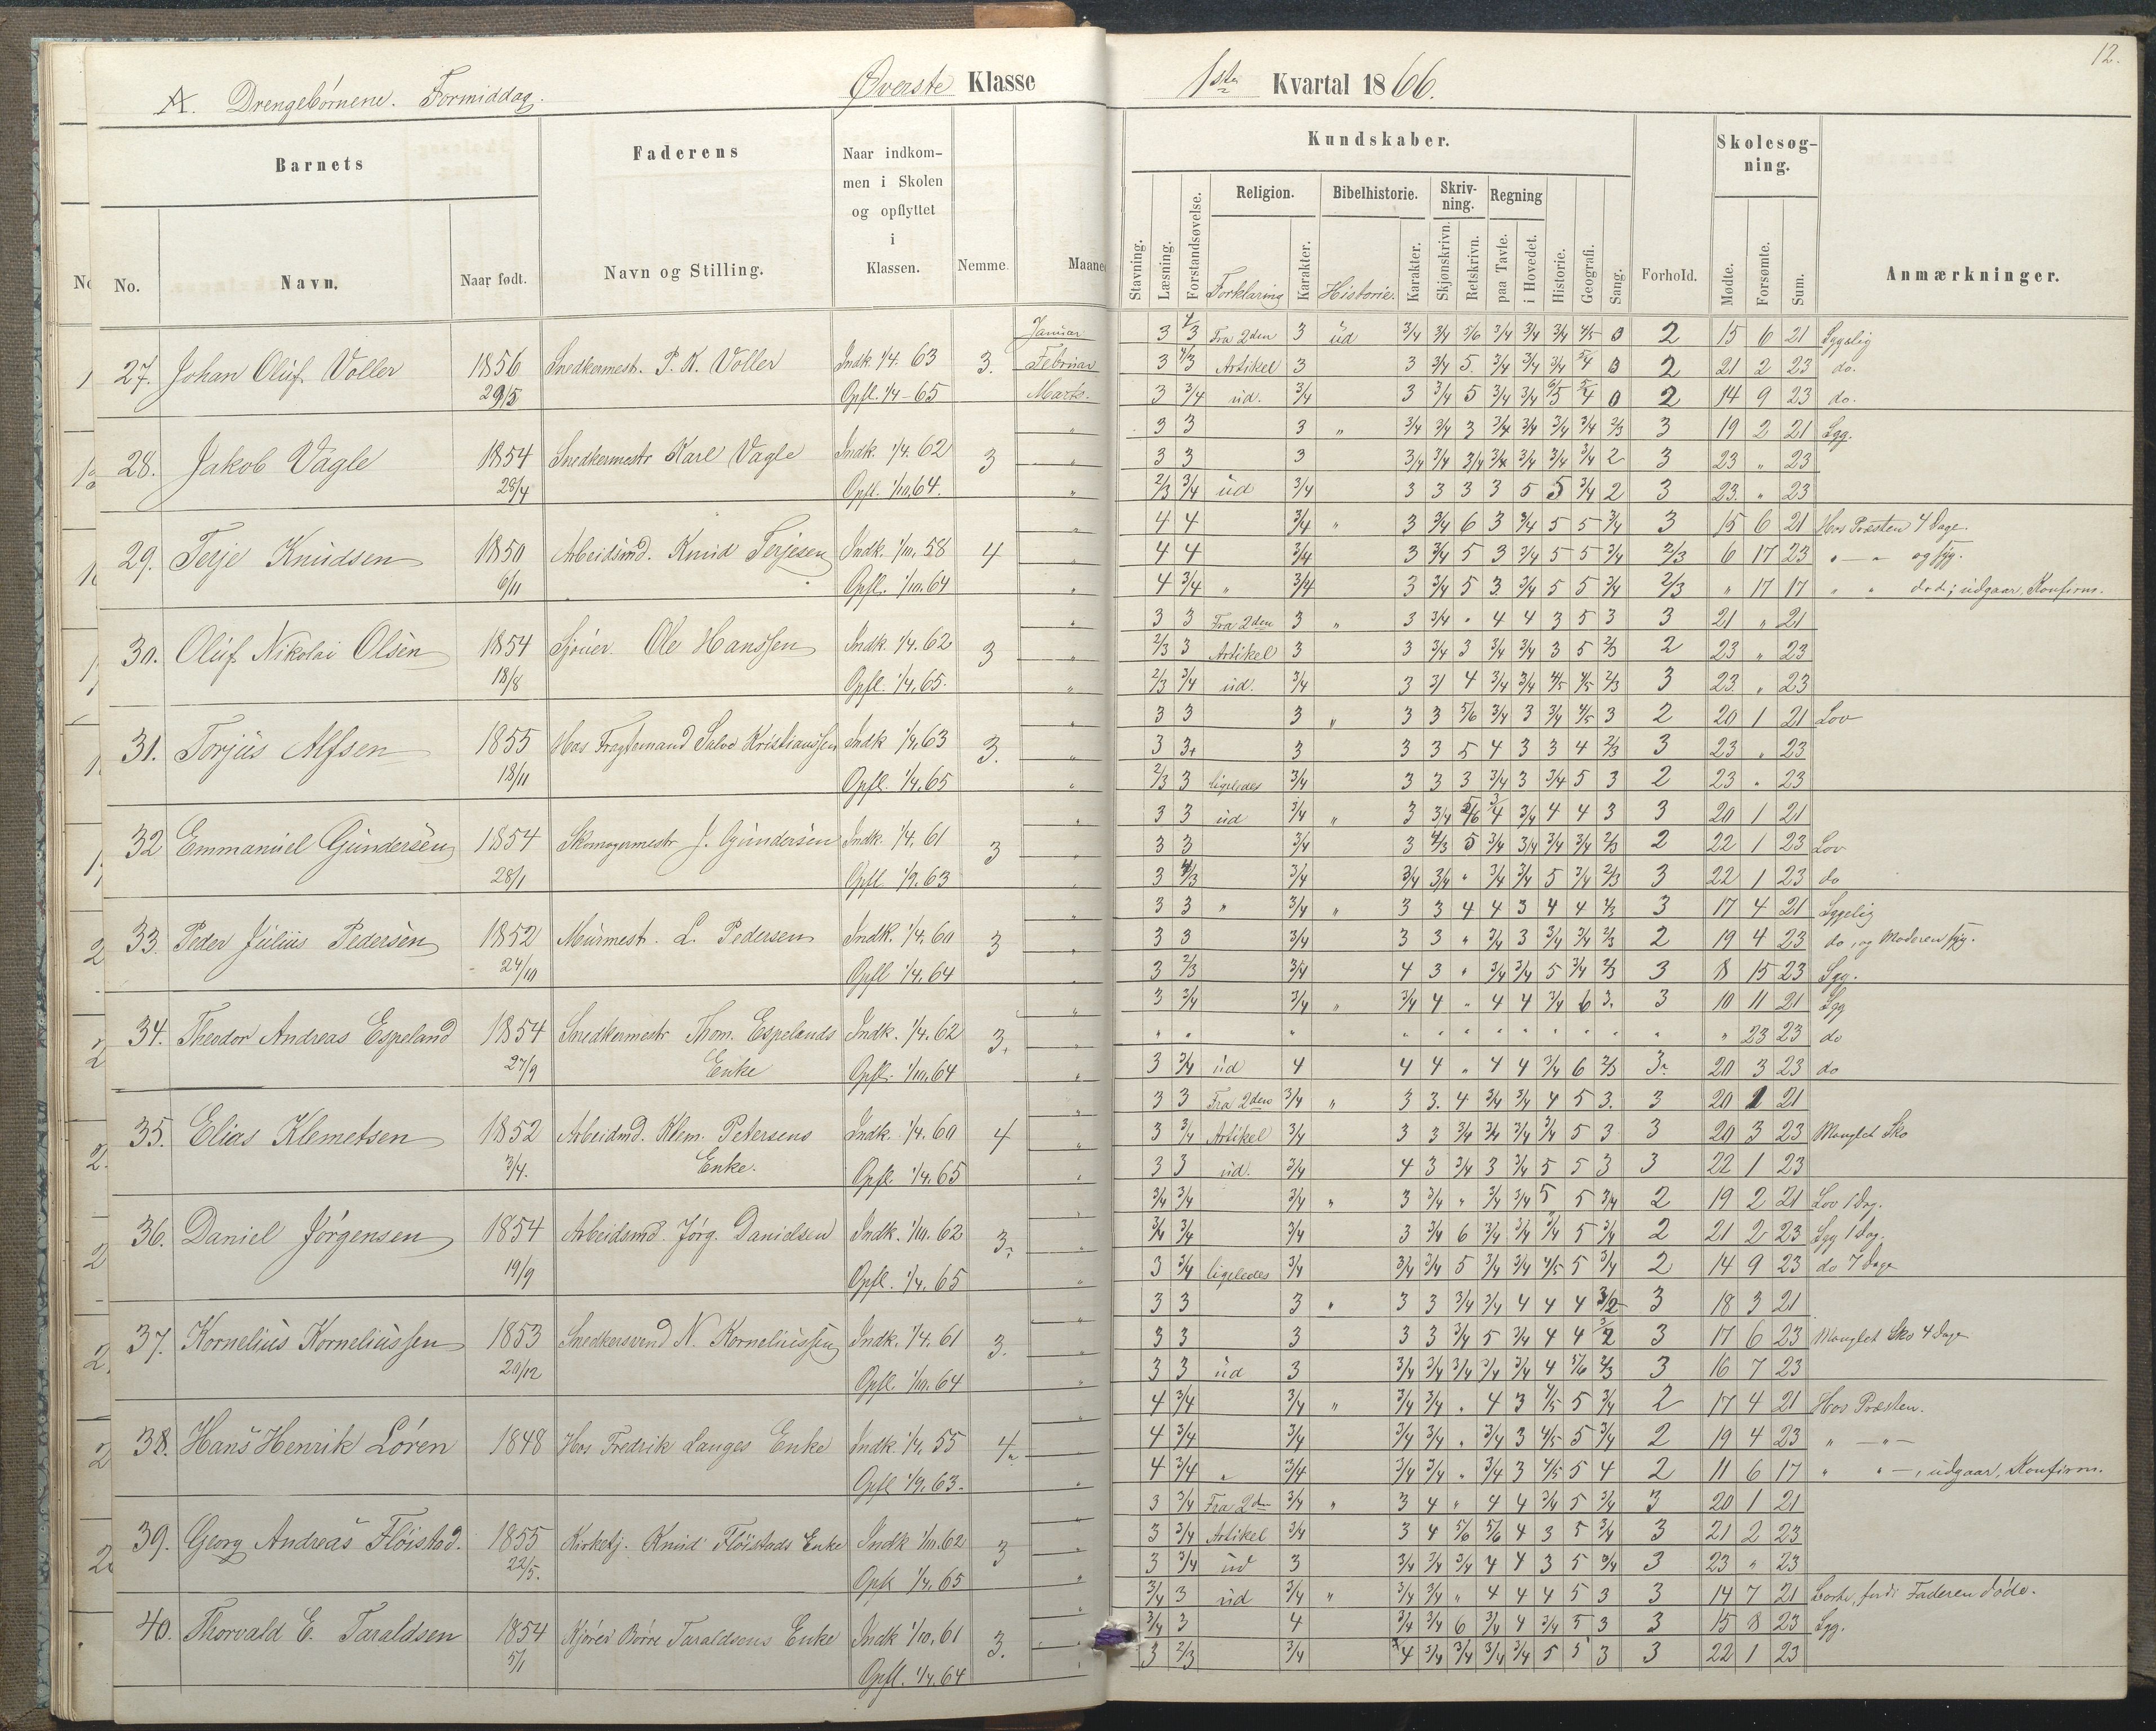 12.
A. Drengebørnene. Formiddag. Øverste Klasse 1ste Kvartal 1866.
Barnets Faderens Naar indkommen i Skolen og opflyttet i Klassen. Nemme. Maaned Kundskaber. Forhold. Skolesøgning. Anmærkninger.
No. Navn. Naar født. Navn og Stilling.
Stavning. Læsning. Forstandsøvelse. Religion. Forklaring Karakter. Bibelhistorie. Historie. Karakter. Skrivning. Skjønskrivn. Retskrivn. Regning paa Tavle. i Hovedet. Historie. Geografi. Sang. Mødte. Forsømte. Sum.
27. Johan Oluf Voller 1856 Snedkermest. P. K. Voller Indk. 1/4. 63 3. Januar 3 4/3 Fra 2den 3 ud 3/4 3/4 5/6 3/4 3/4 3/4 4/5 0 2 15 6 21 Sygelig
29/5 Februar 3 4/3 Artikel 3 3 3/4 5. 3/4 3/4 3/4 5/4 0 2 21 2 23 do.
Opfl. 1/4-65 Marts. 3 3/4 ud. 3/4 3 3/4 5 3/4 3/4 6/5 5/4 0 2 14 9 23 do.
28. Jakob Vagle 1854 Snedkermestr Karl Vagle Indk. 1/4. 62 3 " 3 3 3 " 3/4 3/4 3 3/4 3/4 3/4 3/4 2/3 3 19 2 21 Syg.
28/4 " 3 3 3 3/4 3/4 3/4 3/4 3/4 3/4 3/4 2 3 23 " 23
Opfl. 1/10. 64. " 2/3 3/4 ud 3/4 3 3 3 3 5 5 3/4 2 3 23. " 23
29. Terje Knudsen 1850 Arbeidsmd. Knud Terjesen Indk. 1/10. 58 4 " 4 4 3/4 " 3 3/4 6 3 3/4 5 5 3/4 3 15 6 21 Hos Præsten 4 Dage.
6/11 " 4 4 3/4 3 3/4 5 3 3/4 5 5 3/4 2/3 6 17 23 " — " og syg.
Opfl. 1/10. 64 " 4 3/4 " 3/4 3 3/4 5 3. 3/4 5 5 3/4 2/3 " 17 17 " " do do; udgaar, Konfirm.
30. Oluf Nikolai Olsen 1854 Sjøuer Ole Hanssen Indk. 1/4. 62 3 " 3 3 Fra 2den 3 " 3 3/4 " 4 4 3 5 3 3 21 " 21
18/8 " 2/3 3 Artikel 3 3 3/4 3 3/4 3/4 3 5 2/3 2 23 " 23
Opfl. 1/4. 65. " 2/3 3/4 ud. 3/4 3 3/ 4 3/4 3/4 4/5 4/5 2/3 3 23. " 23
31. Torjus Alfsen 1855 Hos Fragtemand Salve Kristianssen Indk 1/4. 63 3. " 3 3 3 " 3 3 5/6 3/4 3 3/4 4/5 3 2 20 1 21 Lov
18/11 " 3 3+ 3 3 3 5 4 3 3 4 2/3 3 23 " 23
Opfl. 1/4. 65 " 2/3 3 ligeledes 3/4 3 3 3 3/4 3 3/4 5 3 2 23 " 23
32 Emmanuel Gundersen 1854 Skomagermestr J. Gundersen Indk. 1/4. 61 3 " 3 3 ud 3/4 " 3 3/4 5/6 3/4 3/4 4 4 3 3 20 1 21
28/1 " 3 3 3/4 3 4/3 5 3/4 3/4 3/4 3/4 2/3 2 22 1 23 Lov
Opfl. 1/9. 63 " 3 4/3 3/4 3/4 3/4 " 3/4 3/4 5 3/4 2/3 3 22 1 23 do
33. Peder Julius Pedersen 1852 Murmest. L. Pedersen Indk. 1/4. 60 3 " 3 3 " 3/4 " 3 3 4 4 3 4 4 2/3 3 17 4 21 Sygelig
24/10 " 3 3 3/4 3 3 " 3/4 3 3/4 3/4 2/3 2 19 4 23 do, og Moderen syg.
Opfl 1/4. 64 " 3 2/3 3/4 4 3 " 3/4 3/4 5 3/4 2/3 3 8 15 23 Syg.
34. Theodor Andreas Espeland 1854 Snedkermestr Thom. Espelands Indk. 1/4. 62 3. " 3 3/4 3/4 " 3/4 4 " 4 4 3/4 6 3. 3 10 11 21 Syg
27/9 Enke " " " " " " " " " " " " " " 23 23 do
Opfl. 1/10. 64 " 3 3/4 ud 4 4 4 " 4 4 3/4 6 2/3 3. 20 3 23 do
35. Elias Klemetsen 1852 Arbeidmd. Klem. Petersens Indk. 1/4. 60 4 " 3 3 Fra 2den 3/4 " 3 3. 4 3/4 3/4 4 5 3. 3 20 1 21
3/4. Enke. " 3 3/4 Artikel 3/4 3 3 3/4 3/4 3/4 3/4 5 3 3 20 3 23 Manglet Sko
Opfl. 1/4. 65 " 3 3 ud. 3/4 4 3 3/4 3 3/4 5 5 3 3 22 1 23
36. Daniel Jørgensen 1854 Arbeidsmd. Jørg. Danielsen Indk. 1/10. 62 3. " 3/4 3/4 3/4 " 3 3/4 " 3/4 3/4 5 5 3/4 2 19 2 21 Lov 1 Dag.
19/9 " 3/4 3/4 3/4 3 3/4 6 3/4 3/4 3/4 5 3/4 2 21 2 23 Syg 1 Dag.
Opfl. 1/4. 65 " 3 3/4 ligeledes 3/4 3/4 3/4 5 3/4 3/4 4/5 5 3/4 2 14 9 23 do 7 Dage
37. Kornelius Korneliussen 1853 Snedkersvend N. Korneliussen Indk. 1/4. 61 3. " 3 3 3 " 3 3 3/4 3/4 4 4 4 3/2 3 18 3 21
20/12 " 3 3 3 3 3 3/4 5 3/4 4 4 3/2 3 17 6 23 Manglet Sko 4 Dage
Opfl. 1/10. 64 " 3 3 ud 3 3/4 3/4 3/4 3/4 3/4 4 5/6 2/3 3 16 7 23
38. Hans Henrik Loren 1848 Hos Fredrik Langes Enke Indk. 1/4. 55 4. " 4 3/4 3/4 " 3/4 3/4 " 4 3 4/5 5 3/4 2 17 4 21 Hos Præsten.
" 4 3/4 3/4 3/4 3/4 " 3/4 3 4/5 5 3/4 2 19 4 23 " — " —
Opfl 1/9. 63. " 4 3/4 " 3/4 3/4 3/4 " 3/4 3 4/5 5 4 2 11 6 17 " " —, udgaar, Konfirm.
39. Georg Andreas Fløistad. 1855 Kirketj. Knud Fløistads Enke Indk 1/10. 62 3 " 3 3/4 Fra 2den 3/4 " 3 4 " 4 4 3/4 5 3/4 3 20 1 21
22/5. " 3 3/4 Artikel 3/4 3 4 5/6 5/6 4 3 5 3/4 3 21 2 23
Opfl. 1/4. 65 " 3 3/4 ud 3 3/4 3/4 3/4 4 4 3 5 3/4 3 23 " 23
40. Thorvald E. Taraldsen 1854 Børre Taraldsens Enke Indk 1/10. 61 3. " 3/4 3 ud 3/4 " 3/4 3/4 " 4 4 4 5 3 3 14 7 21 Borte, fordi Faderen døde.
5/1 " 3/4 3 4 3/4 3/4 6 3/4 4 3/4 5 3 3 15 8 23 Syg.
Opfl. 1/4. 64 " 3 2/3 3/4 4 3/4 3/4 3/4 3/4 5 5 3 3 22 1 23